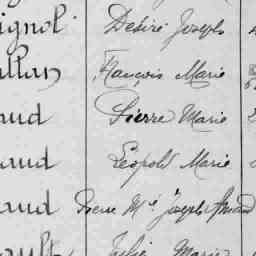 ignol Désiré Joseph
illan François Marie
aud Pierre Marie
aud Léopold Marie
aud Pierre Mie Joseph Armand
ault Julie Marie